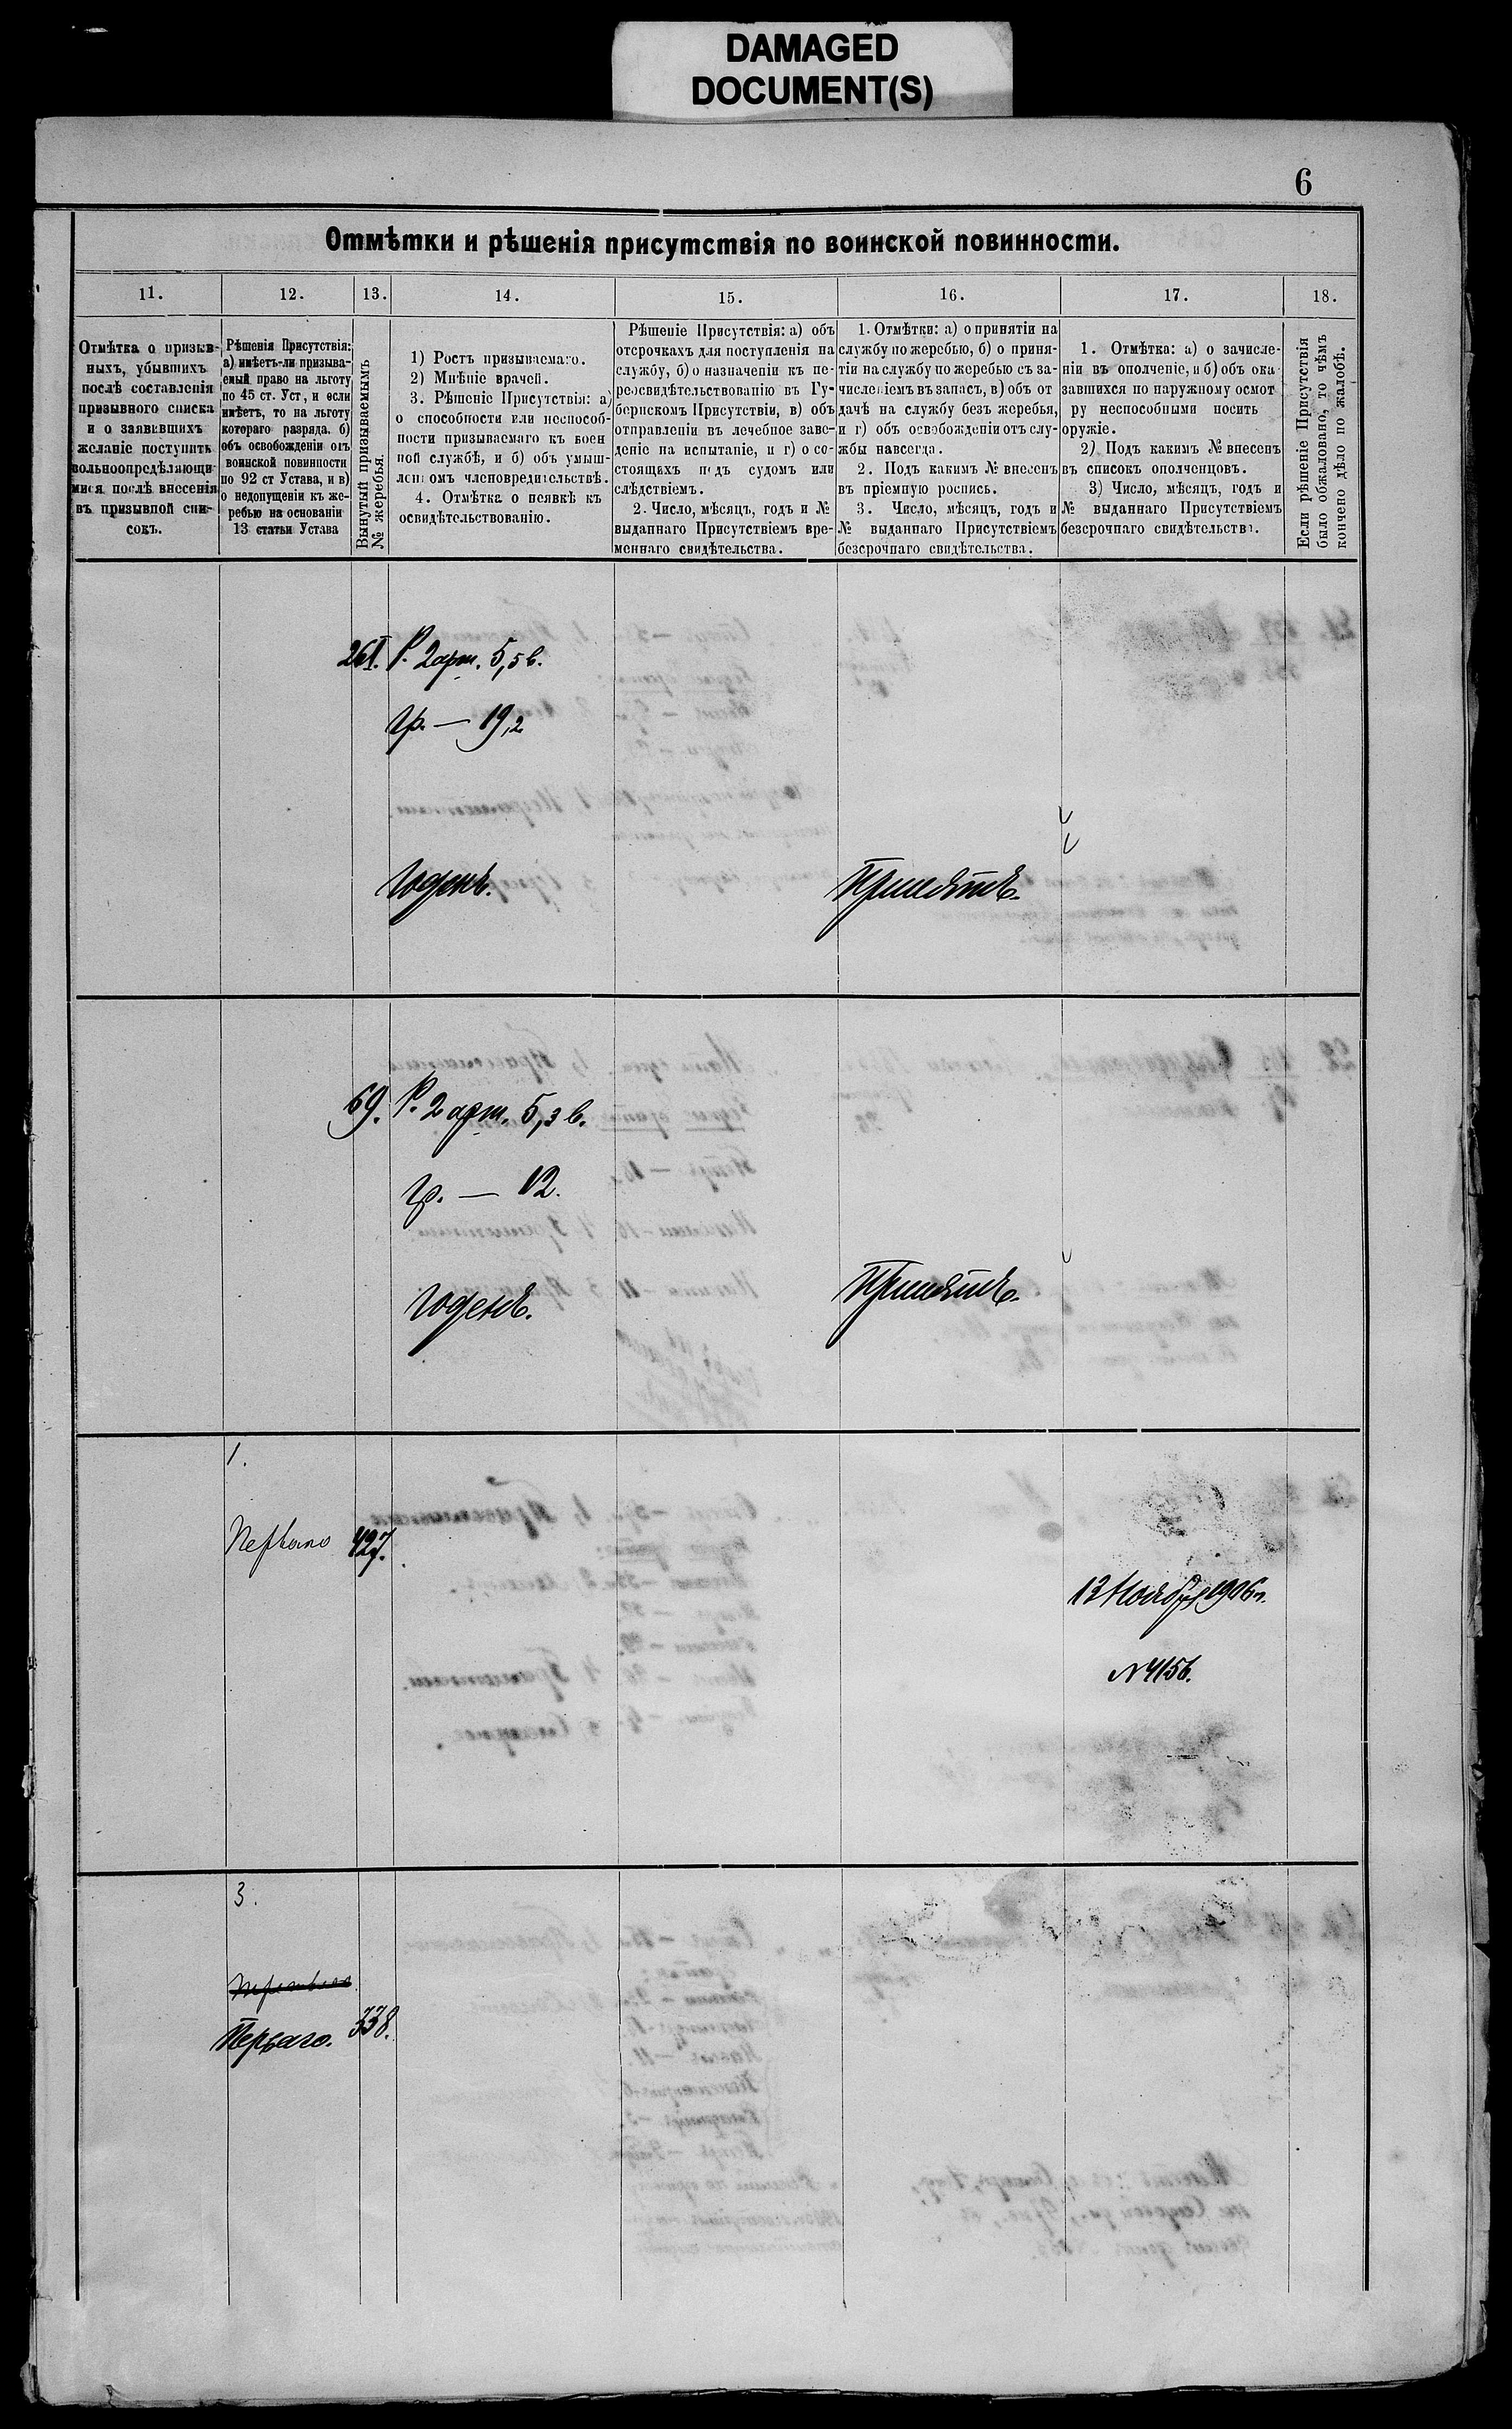 DAMAGED
DOCUMENT(S)
6
Отмѣтки и рѣшенія присутствія по воинской повинности.
11.
12.
13.
14.
15.
16.
17.
18.
Отмѣтка о призыв-
ныхъ, убывшихъ
послѣ составленія
призывного списка
и о заявившихъ
желаніе поступить
вольноопредѣляющи-
мися послѣ внесенія
въ призывной спи-
сокъ.
Рѣшенія Присутствія:
а) имѣетъ-ли призыва-
емый право на льготу
по 45 ст. Уст, и если
имѣетъ, то на льготу
котораго разряда. б)
объ освобожденіи отъ
воинской повинности
по 92 ст Устава, и в)
о недопущеніи къ же-
ребью на основаніи
13 статьи Устава
Вынутый призываемымъ
№ жеребья.
1) Ростъ призываемаго.
2) Мнѣніе врачей.
3. Рѣшеніе Присутствія: а)
о способности или неспособ-
ности призываемаго къ воен
ной службѣ, и б) объ умыш-
леномъ членовредительствѣ.
4. Отмѣтка о неявкѣ къ
освидѣтельствованію.
Рѣшеніе Присутствія: а) объ
отсрочкахъ для поступленія на
службу, б) о назначеніи къ пе-
реосвидѣтельствованію въ Гу-
бернскомъ Присутствіи, в) объ
отправленіи въ лечебное заве-
деніе на испытаніе, и г) о со-
стоящихъ подъ судомъ или
слѣдствіемъ.
2. Число, мѣсяцъ, годъ и №
выданнаго Присутствіемъ вре-
меннаго свидѣтельства.
1. Отмѣтки: а) о принятіи на
службу по жеребью, б) о приня-
тіи на службу по жеребью съ за-
численіемъ въ запасъ, в) объ от
дачѣ на службу безъ жеребья,
и г) объ освобожденіи отъ слу-
жбы навсегда.
2. Подъ какимъ № внесенъ
въ пріемную роспись.
3. Число, мѣсяцъ, годъ и
№ выданнаго Присутствіемъ
безсрочнаго свидѣтельства.
1. Отмѣтка: а) о зачисле-
ніи въ ополченіе, и б) объ ока
завшихся по наружному осмот
ру неспособными носить
оружіе.
2) Подъ какимъ № внесенъ
въ списокъ ополченцовъ.
3) Число, мѣсяцъ, годъ и
№ выданнаго Присутствіемъ
безсрочнаго свидѣтельства.
Если рѣшеніе Присутствія
было обжаловано, то чѣмъ
кончено дѣло по жалобѣ.
261. Р. 2 арш. 5,5 в.
гр. — 19,2
Годенъ.
Принятъ.
69. Р. 2 арш. 5,3 в.
гр. — 12.
Годенъ.
Принятъ.
1.
Перваго
427.
13 Ноября 1906 г.
N 4156.
3.
Перваго.
338.